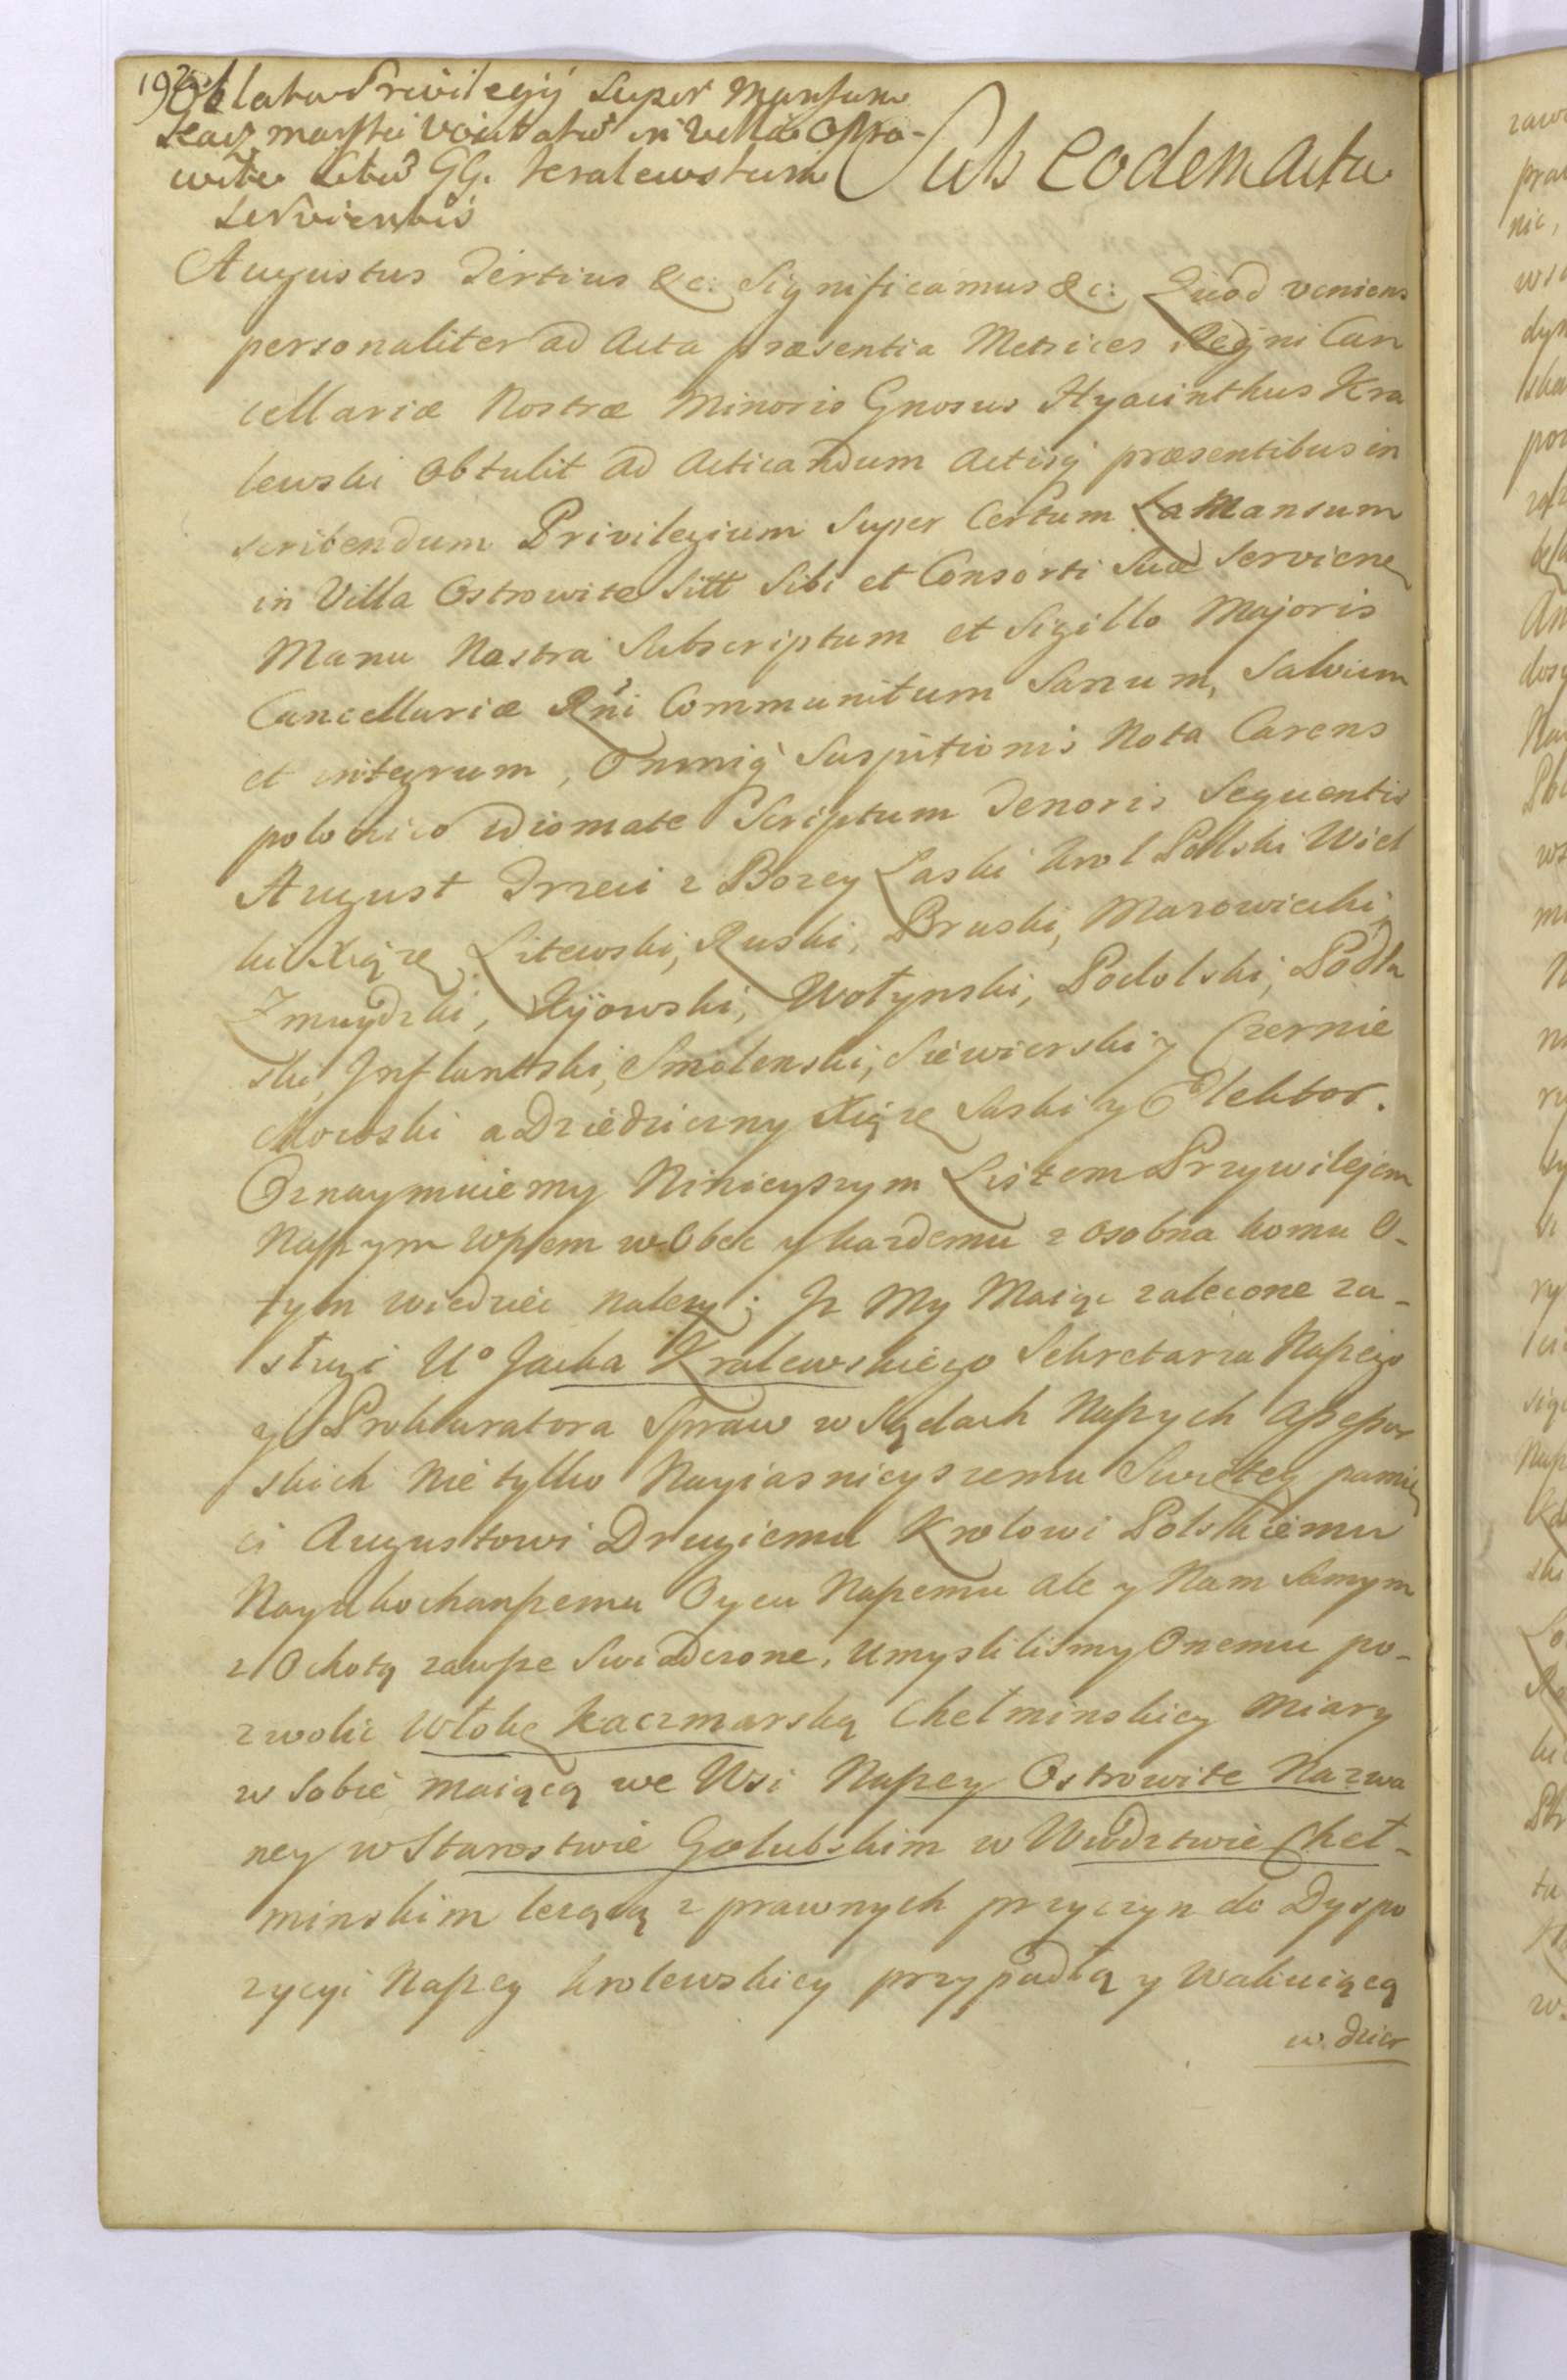 192
Oblata Privilegij super Mansum
Kaczmarski vocitatum in Villa Ostro-
wite sitū GG. Kralewskum
servientis
Sub eodem actu
Augustus Tertius &c: Significamus &c: Quod veniens
personaliter ad Acta præsentia Metrices Regni Can
cellariæ Nostræ Minoris Gnosus Hyacinthus Kra
lewski obtulit ad Acticandum Actisq præsentibus in
scribendum Privilegium super Certum Mansum
in Villa Ostrowite sitt sibi et Consorti suæ serviens
Manu Nostra Subscriptum et Sigillo Majoris
Cancellariæ Rni Communitum Sanum, Salvum
et integrum, Omniq Suspitionis Nota Carens
polonico idiomate Scriptum Tenoris Sequentis
August Trzeci z Bozey Łaski krol Polski Wiel
ki Xiąze Litewski, Ruski, Pruski, Mazowiecki,
Zmuydzki, Kijowski, Wołynski, Podolski, Podla
ski, Inflantski, Smolenski, Siewierski y Czernie
chowski a Dziedziczny Xiąze Saski y Elektor.
Oznaymuiemy Ninieyszym Listem Przywilejem
Naszym wszem w Obec y kazdemu z osobna komu o-
tym wiedziec nalezy; Iz My Maiąc zalecone za-
sługi Uo Jacka Kralewskiego Sekretarza Naszego
y Prokuratora Spraw w Sądach Naszych Assessor
skich Nie tylko Nayiasnieyszemu Swiętey pamię
ci Augustowi Drugiemu Krolowi Polskiemu
Nayukochanszemu Oycu Naszemu ale y Nam samym
z Ochotą zawsze swiadczone, umyslilismy Onemu po-
zwolic włokę kaczmarską Chełminskiey Miary
w sobie maiącą we Wsi Naszey Ostrowite Nazwa
ney w Starostwie Golubskim w Wwdztwie Cheł-
minskim lezącą z prawnych przyczyn do Dyspo
zycyi Naszey krolewskiey przypadłą y wakuiącą
w dzier